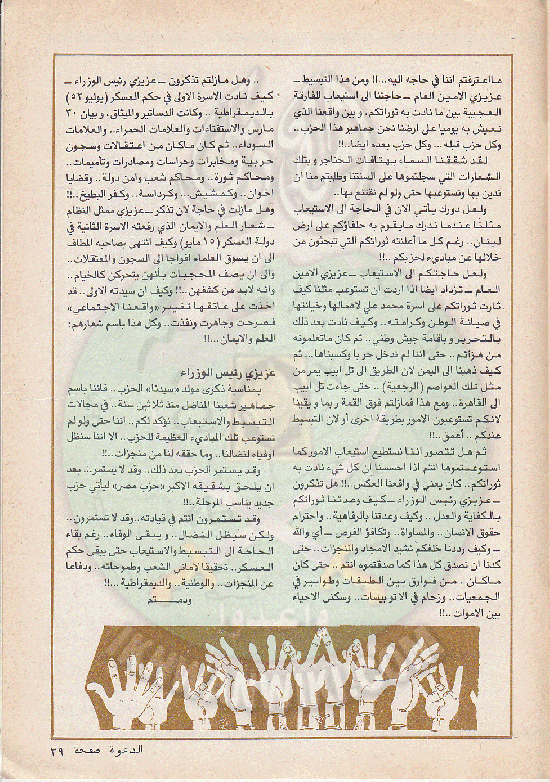 ما اعترفتم اننا في حاجه اليه ..!! ومن هذا التبسيط ــ
عزيزي الامين العام ــ حاجتنا الى استيعاب المقارنة
العجيبة بين ما نادت به ثوراتكم ، وبين واقعنا الذي
نعيش به يوميا على ارضنا نحن جماهير هذا الحزب ..
وكل حزب قبله .. وكل حزب بعده ايضا ..!!
لقد شققنا السماء بهتافات الحناجر و بتلك
الشعارات التي سجلتموها على السنتنا وطلبتم منا ان
ندين بها ونستوعبها حتى ولو لم نقتنع بها ..
ولعل دورك يأتي الان في الحاجة الى الاستيعاب
مثلنا عندما ندرك ما يقوم به حلفاؤكم على ارض
لبنان .. رغم كل ما أعلنته ثوراتكم التي تبحثون من
خلالها عن مباديء لحزبكم ..!!
ولعل حاجتكم الى الاستيعاب ــ عزيزي الامين
العام ــ تزداد ايضا اذا اردت ان تستوعب مثلنا كيف
ثارت ثوراتكم على اسرة محمد علي لاهمالها وخيانتها
في صيانة الوطن وكرامته .. وكيف نادت بعد ذلك
بالتحرير و باقامة جيش وطني .. ثم كان ما تعلمونه
من هزائم .. حتى اننا لم ندخل حربا وكسبناها .. ثم
كيف ذهبنا الى اليمن لان الطريق الى تل ابيب يمر من
مثل تلك العواصم (الرجعية) .. حتى جاءت تل ابيب
الى القاهرة .. ومع هذا فمازلتم فوق القمة ربما و يقينا
لانكم تستوعبون الامور بطريقة اخرى أو لان التبسيط
عندكم .. أعمق ..!!
ثم هل تتصور اننا نستطيع استيعاب الامور كما
استوعبتموها انتم اذا احسسنا ان كل شيء نادت به
ثوراتكم .. كان يعني في واقعنا العكس ..!! هل تذكرون
ــ عزيزي رئيس الوزراء ــ كيف وعدتنا ثوراتكم
بالكفاية والعدل .. وكيف وعدتنا بالرفاهية .. واحترام
حقوق الانسان .. والمساواة .. وتكافؤ الفرص ــ أي والله
ــ وكيف رددنا خلفكم نشيد الامجاد والمنجزات .. حتى
كدنا ان نصدق كل هذا كما صدقتموه انتم .. حتى كان
ماكان .. من فوارق بين الطبقات وطوابير في
الجمعيات .. وزحام في الاتوبيسات .. وسكنى الاحياء
بين الاموات ..!!
.. وهل مازلتم تذكرون ــ عزيزي رئيس الوزراء ــ
كيف نادت الاسرة الاولى في حكم العسكر (يوليو ٥٢)
بالديمقراطية .. وكانت الدساتير والميثاق ، وبيان ٣٠
مارس والاستفتاءات والعلامات الحمراء .. والعلامات
السوداء .. ثم كان ماكان من اعتقالات وسجون
حربية ومخابرات وحراسات ومصادرات وتأميمات ..
ومحاكم ثورة .. ومحاكم شعب وامن دولة .. وقضايا
اخوان .. وكمشيش .. وكرداسة .. وكفر البطيخ ..!!
وهل مازلت في حاجة لان تذكر ــ عزيزي ممثل النظام
ــ شعار العلم والايمان الذي رفعته الاسرة الثانية في
دولة العسكر (١٥ مايو) وكيف انتهى بصاحبه المطاف
الى ان يسوق العلماء افواجا الى السجون والمعتقلات ..
والى ان يصف المحجبات بأنهن يتحركن كالخيام ..
وانه لابد من كشفهن ..!! وكيف ان سيدته الاولى .. قد
اخذت على عاتقها تغيير « واقعنا الاجتماعي »
فصرحت وجاهرت ونفذت .. وكل هذا باسم شعارهم :
العلم والايمان ..!!
عزيزي رئيس الوزراء
بمناسبة ذكرى مولد « سيدنا » الحزب .. فاننا باسم
جماهير شعبنا المناضل منذ ثلاثين سنة .. في مجالات
التبسيط والاستيعاب .. نؤكد لكم .. اننا حتى ولو لم
نستوعب تلك المباديء العظيمة للحزب .. الا اننا سنظل
أوفياء لنضالنا .. وما حققه لنا من منجزات ..!!
وقد يستمر الحزب بعد ذلك .. وقد لا يستمر .. بعد
ان يلحق بشقيقه الاكبر « حزب مصر » ليأتي حزب
جديد يناسب المرحلة ..!!
وقد تستمرون انتم في قيادته .. وقد لا تستمرون ..
ولكن سيظل النضال .. و يبقى الوفاء .. رغم بقاء
الحاجة الى التبسيط والاستيعاب حتى يبقى حكم
العسكر .. تحقيقا لاماني الشعب وطموحاته .. ودفاعا
عن المنجزات .. والوطنية .. والديمقراطية ..!!
ودمـتم
الدعوة صفحة ٣٩